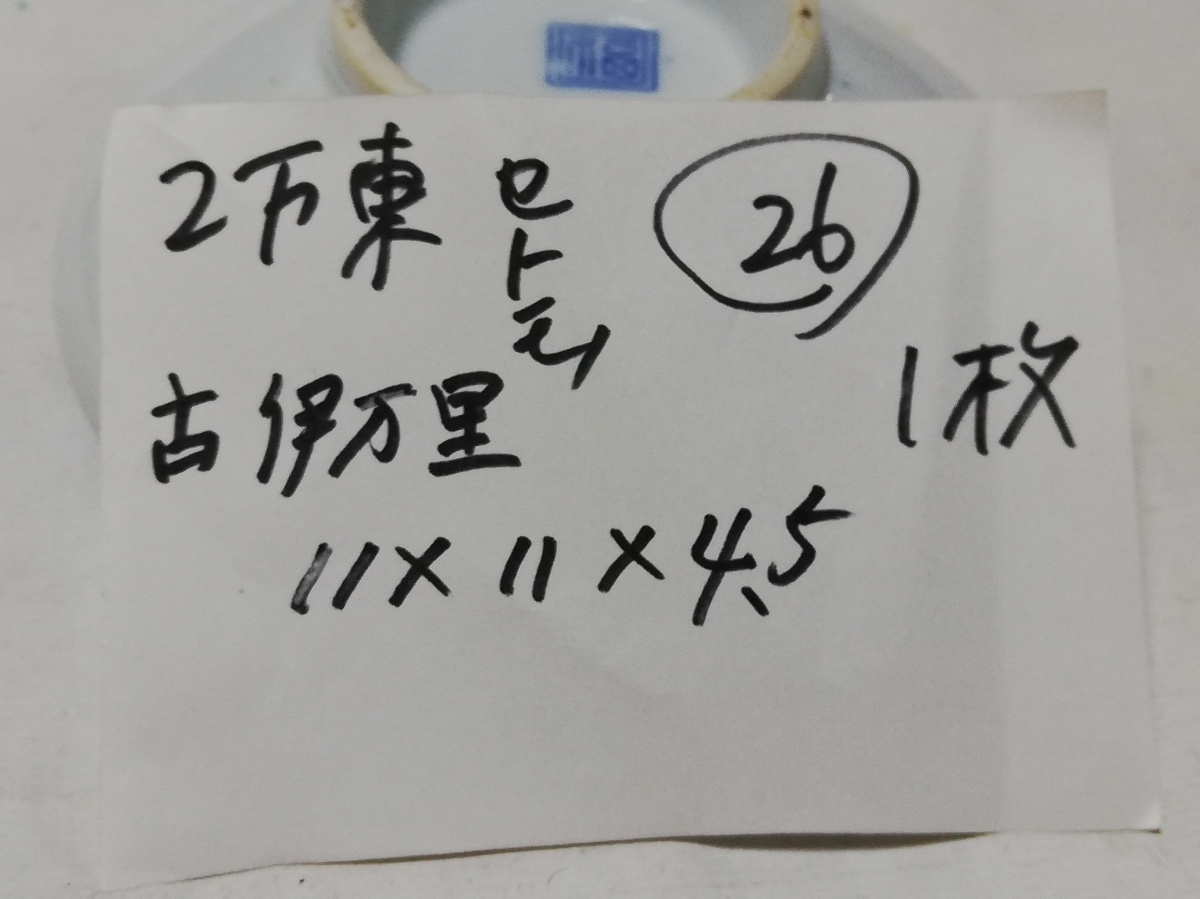 2万東 ㉖
古伊万里 1枚
11×11×4.5